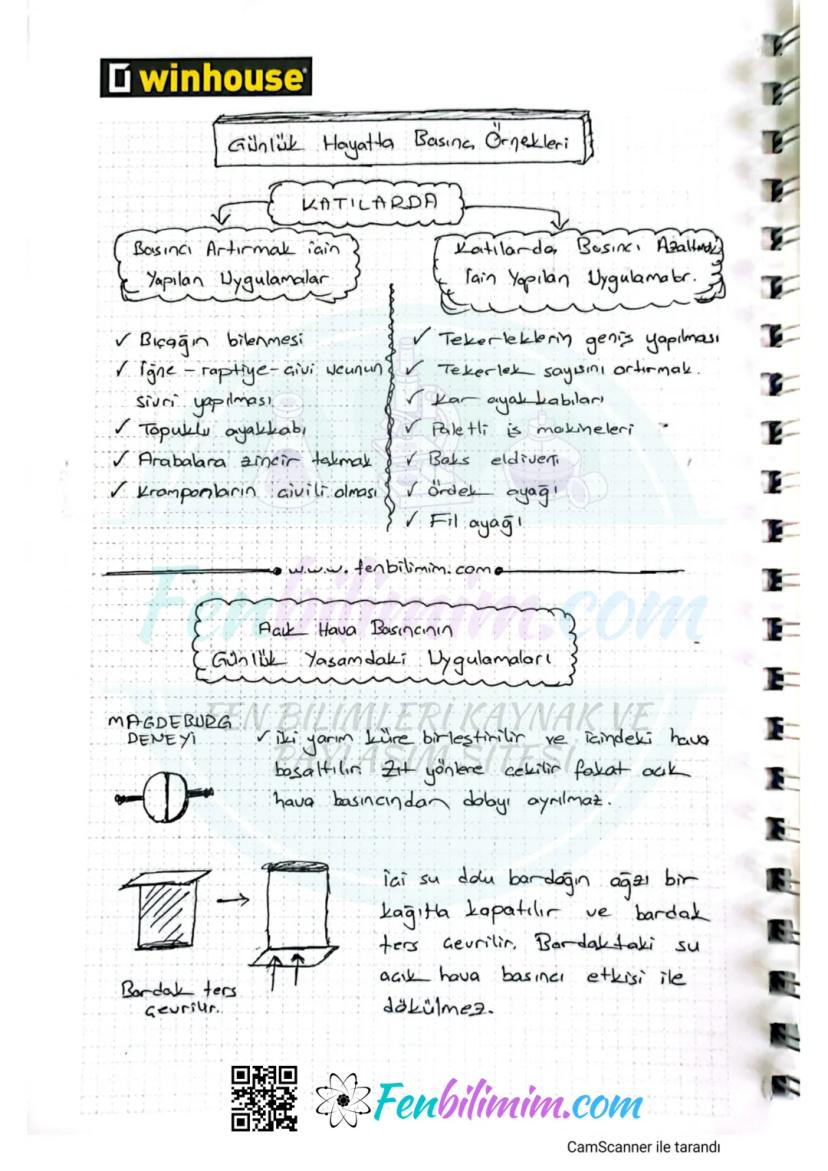 winhouse
Günlük Hayatta Basınç Örnekleri
KATILARDA
Basıncı Artırmak için
Yapılan Uygulamalar
Katılarda Basıncı Azaltmak
İçin Yapılan Uygulamalar.
✓ Bıçağın bilenmesi
✓ İğne - raptiye - çivi ucunun
sivri yapılması
✓ Topuklu ayakkabı
✓ Arabalara zincir takmak
✓ Kramponların çivili olması
✓ Tekerleklerin geniş yapılması
✓ Tekerlek sayısını artırmak.
✓ Kar ayakkabıları
✓ Paletli iş makineleri
✓ Boks eldiveni
✓ Ördek ayağı
✓ Fil ayağı
www.fenbilimim.com
Fenbilimim.com
Açık Hava Basıncının
Günlük Yaşamdaki Uygulamaları
FEN BİLİMLERİ KAYNAK VE
PAYLAŞIM SİTESİ
MAGDEBURG
DENEYİ
✓ iki yarım küre birleştirilir ve içindeki hava
boşaltılır. Zıt yönlere çekilir fakat açık
hava basıncından dolayı ayrılmaz.
Bardak ters
çevrilir.
İçi su dolu bardağın ağzı bir
kağıtla kapatılır ve bardak
ters çevrilir. Bardaktaki su
açık hava basıncı etkisi ile
dökülmez.
Fenbilimim.com
CamScanner ile tarandı